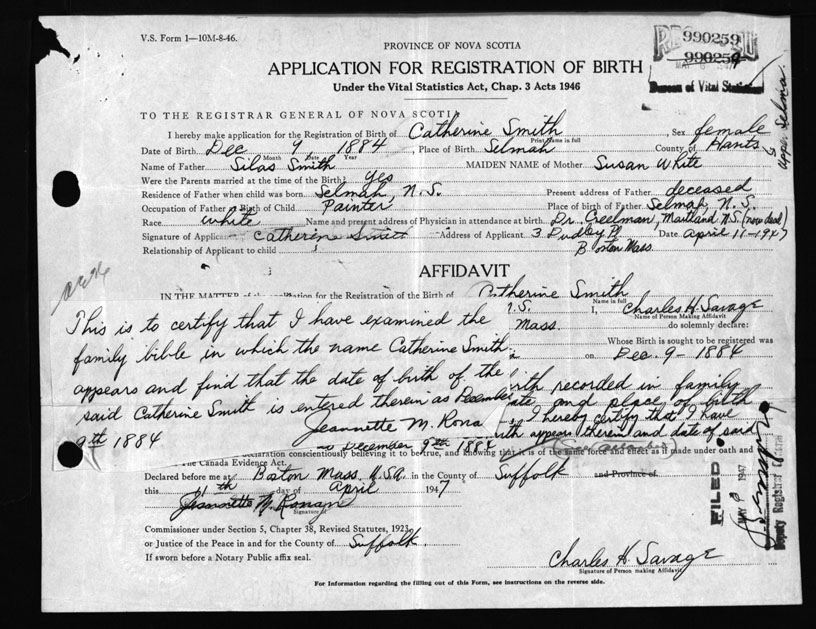 V.S. Form 1—10M-8-46.
990259
990259
PROVINCE OF NOVA SCOTIA
APPLICATION FOR REGISTRATION OF BIRTH
Under the Vital Statistics Act, Chap. 3 Acts 1946
Bureau of Vital
TO THE REGISTRAR GENERAL OF NOVA SCOTIA
I hereby make application for the Registration of Birth of Catherine Smith, Sex female
Print Name in full
Date of Birth Dec 9, 1884, Place of Birth Selmah County of Hants
Month Date Year
Upper Selma.
Name of Father Silas Smith MAIDEN NAME of Mother Susan White
Were the Parents married at the time of the Birth? Yes
Residence of Father when child was born Selmah, N.S. Present address of Father deceased
Occupation of Father at Birth of Child Painter Place of birth of Father Selmah, N.S.
Race white Name and present address of Physician in attendance at birth Dr. Creelman, Maitland N.S. (now dead)
Signature of Applicant Catherine Smith Address of Applicant 3 Dudley Pl. Date April 11-1947
Boston Mass
Relationship of Applicant to child
AFFIDAVIT
IN THE MATTER of the application for the Registration of the Birth of Catherine Smith
Name in full
I, Charles H. Savage
Name of Person Making Affidavit
Mass. do solemnly declare:
Whose Birth is sought to be registered was
on Dec. 9 - 1884
This is to certify that I have examined the
family bible in which the name Catherine Smith
appears and find that the date of birth of the
said Catherine Smith is entered therein as December
9th 1884
Jeannette M. Rona
birth recorded in family
date and place of birth
I hereby certify that I have
appears therein and date of said
December 9th 1884
declaration conscientiously believing it to be true, and knowing that it is of the same force and effect as if made under oath and
the Canada Evidence Act.
Declared before me at Boston Mass. U.S.A. in the County of Suffolk and Province of
this 11th day of April 1947
Jeannette M. Ronan
Signature of
Commissioner under Section 5, Chapter 38, Revised Statutes, 1923
or Justice of the Peace in and for the County of Suffolk
If sworn before a Notary Public affix seal.
Charles H. Savage
Signature of Person making Affidavit
FILED
MAY 8 1947
Deputy Registrar General
For Information regarding the filling out of this Form, see instructions on the reverse side.